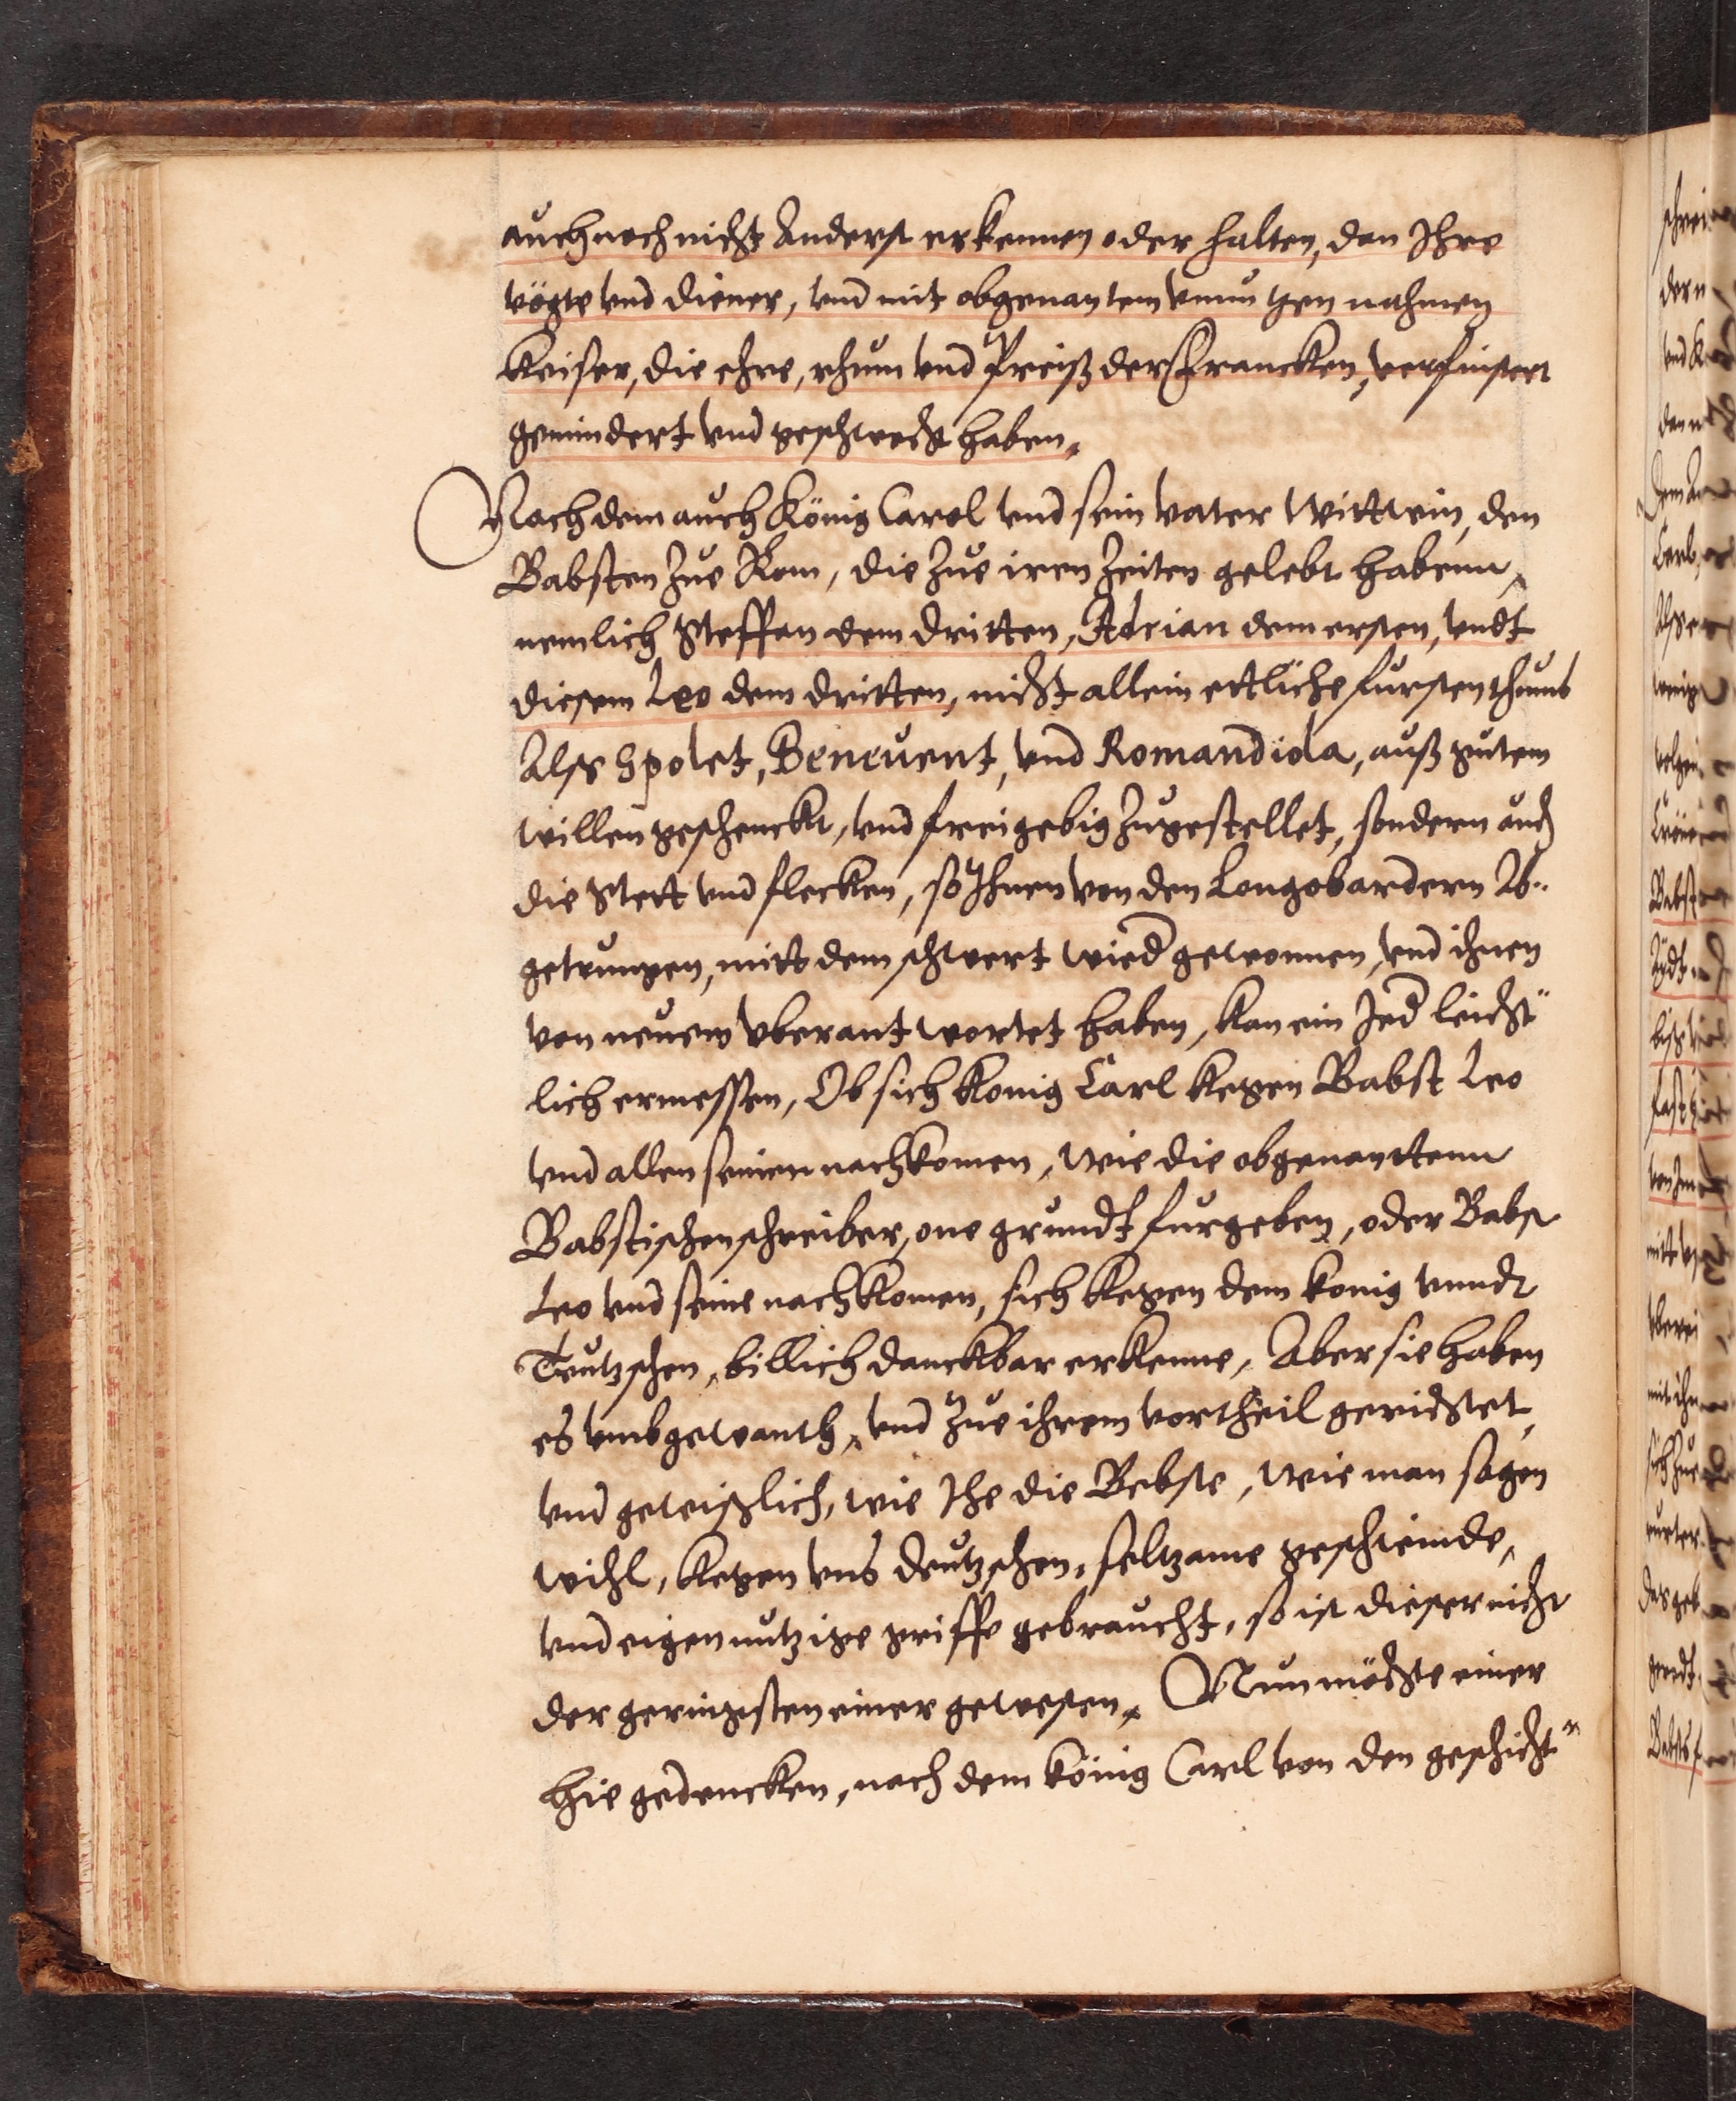 auch noch nicht Anderst erkennen oder halten, dan Ihre
vögte vnd diener, vnd mit obgenantem nahmen
Keiser, die ehre, rhum vnd Preiß der Francken, verfinstert
gemindert vnd geschwecht haben.
Nach dem auch König Carol vnd sein vater den
Babsten Zue Rom, die Zue iren Zeiten gelebt habenn,
nemlich Steffan dem dritten, Adrian dem ersten, vndt
diesem Leo dem dritten, nicht allein ettliche furstenthumb
Alss Spolet, Beneuent, vnd Romandiola, auß gutem
willen geschenckt, vnd freigebig Zugestellet, sondern auch
die Stett vnd flecken, so Ihnen von den Longobardern Ab..
getrungen, mitt dem schwert wied gewonnen, vnd ihnen
von neuem vberantwortet haben, kan ein Jed leicht"
lich ermessen, Ob sich Konig Carl kegen Babst Leo
vnd allen seinen nachkomen, wie die obgenanttenn
Babstischen schreiber, one grundt furgeben, oder Babst
Leo vnd seine nachkomen, sich kegen dem konig vnndt
Teutzschen, billich danckbar erkenne, Aber sie haben
es vmbgewanth, vnd Zue ihrem vortheil gerichtet,
vnd gewißlich, wie Ihe die Bebste, wie man sagen
wihl, kegen vns deutzschen, seltzame geschwinde,
vnd eigennutzige griffe gebraucht, so ist dieser nicht
der geringsten einer gewesen. Nun möchte einer
hie gedencken, nach dem könig Carl von den geschicht n